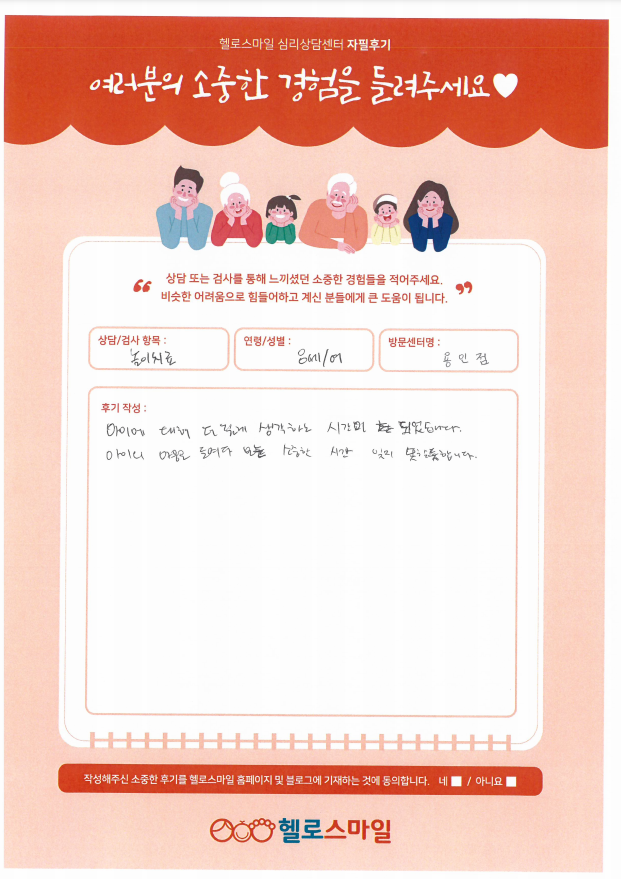 헬로스마일 심리상담센터 자필후기
여러분의 소중한 경험을 들려주세요
상담 또는 검사를 통해 느끼셨던 소중한 경험들을 적어주세요.
비슷한 어려움으로 힘들어하고 계신 분들에게 큰 도움이 됩니다.
상담/검사 항목 :
놀이치료
연령/성별 :
/여
방문센터명 :
용인점
후기 작성 :
아이에 대해 더 깊게 생각하는 시간이 되었습니다.
아이의 마음을 들여다 보는 소중한 시간 잊지 못합니다.
작성해주신 소중한 후기를 헬로스마일 홈페이지 및 블로그에 기재하는 것에 동의합니다. 네 / 아니요
헬로스마일